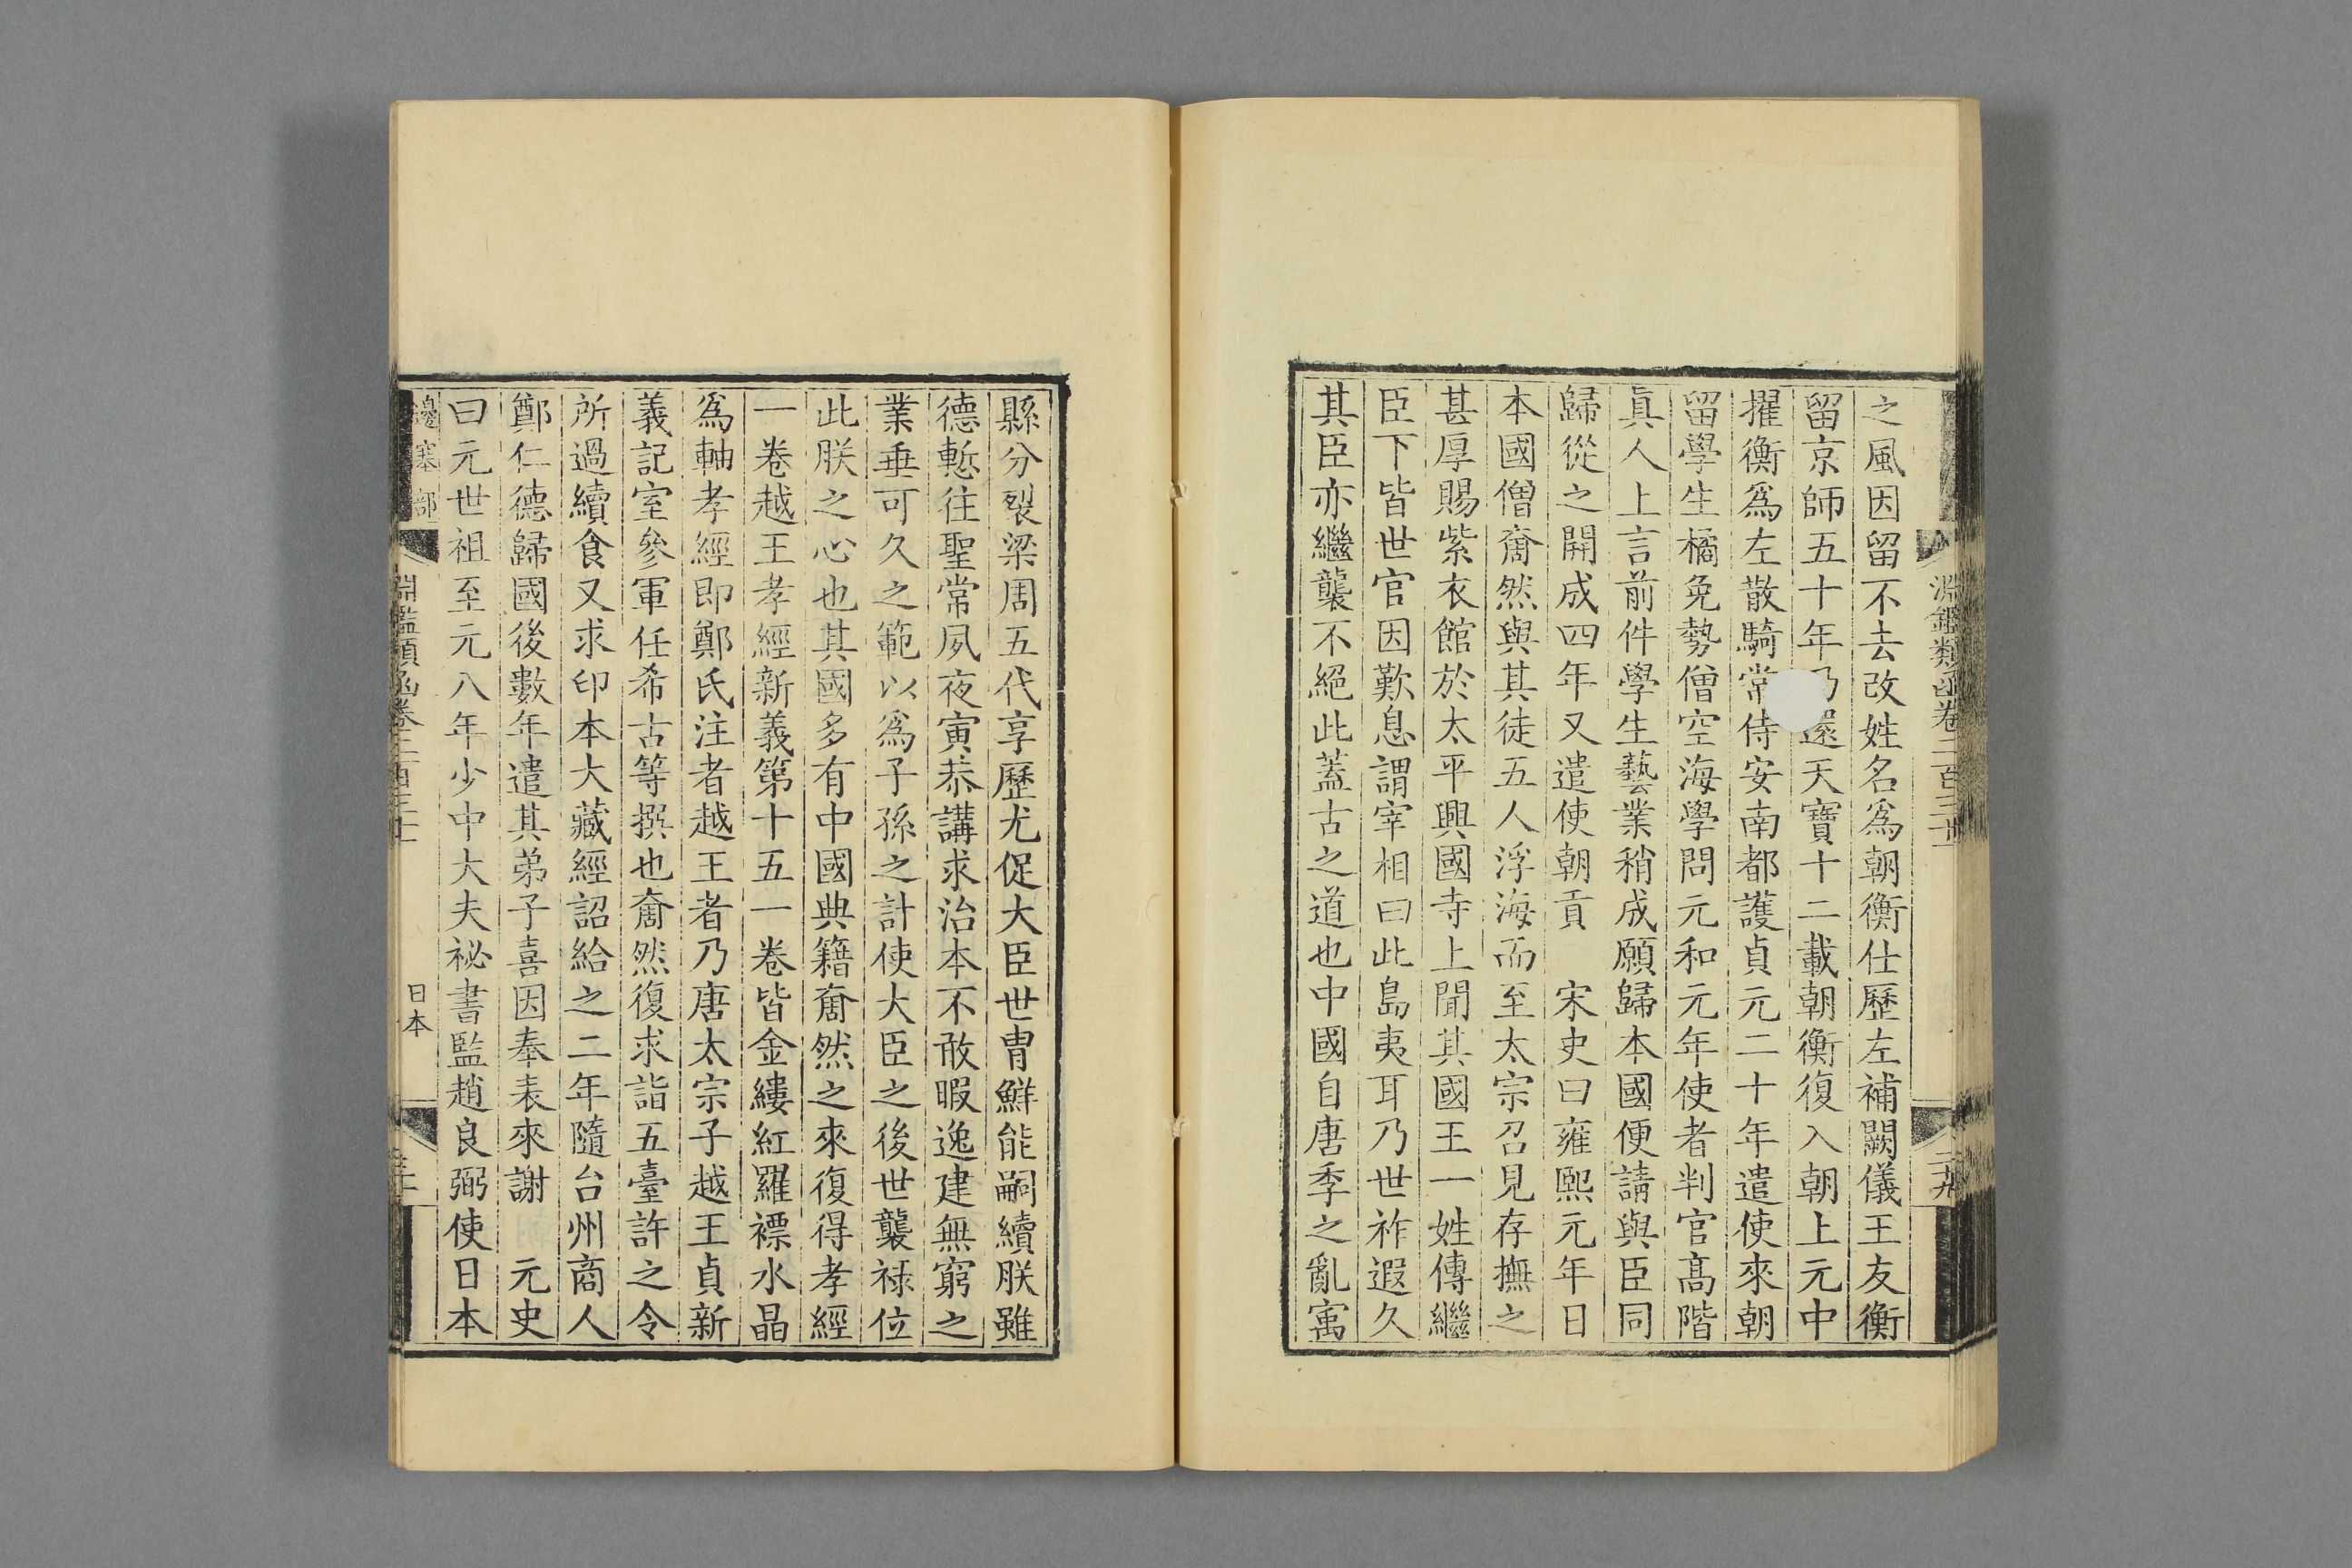 淵鑑類函卷二百三十一
二十九
之風因留不去改姓名爲朝衡仕歷左補闕儀王友衡
留京師五十年乃還天寶十二載朝衡復入朝上元中
擢衡爲左散騎常侍安南都護貞元二十年遣使來朝
留學生橘免勢僧空海學問元和元年使者判官高階
眞人上言前件學生藝業稍成願歸本國便請與臣同
歸從之開成四年又遣使朝貢　宋史曰雍熙元年日
本國僧奝然與其徒五人浮海而至太宗召見存撫之
甚厚賜紫衣館於太平興國寺上聞其國王一姓傳繼
臣下皆世官因歎息謂宰相曰此島夷耳乃世祚遐久
其臣亦繼襲不絕此蓋古之道也中國自唐季之亂寓
縣分裂梁周五代享歷尤促大臣世冑鮮能嗣續朕雖
德慙往聖常夙夜寅恭講求治本不敢暇逸建無窮之
業垂可久之範以爲子孫之計使大臣之後世襲祿位
此朕之心也其國多有中國典籍奝然之來復得孝經
一卷越王孝經新義第十五一卷皆金縷紅羅褾水晶
爲軸孝經即鄭氏注者越王者乃唐太宗子越王貞新
義記室參軍任希古等撰也奝然復求詣五臺許之令
所過續食又求印本大藏經詔給之二年隨台州商人
鄭仁德歸國後數年遣其弟子喜因奉表來謝　元史
曰元世祖至元八年少中大夫祕書監趙良弼使日本
邊塞部
淵鑑類函卷二百三十一
日本